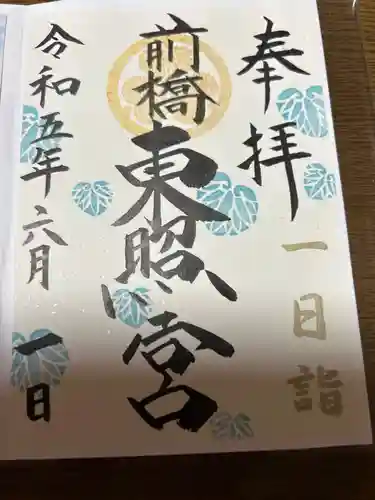 奉拝
一日詣
前橋
東照宮
令和五年六月一日